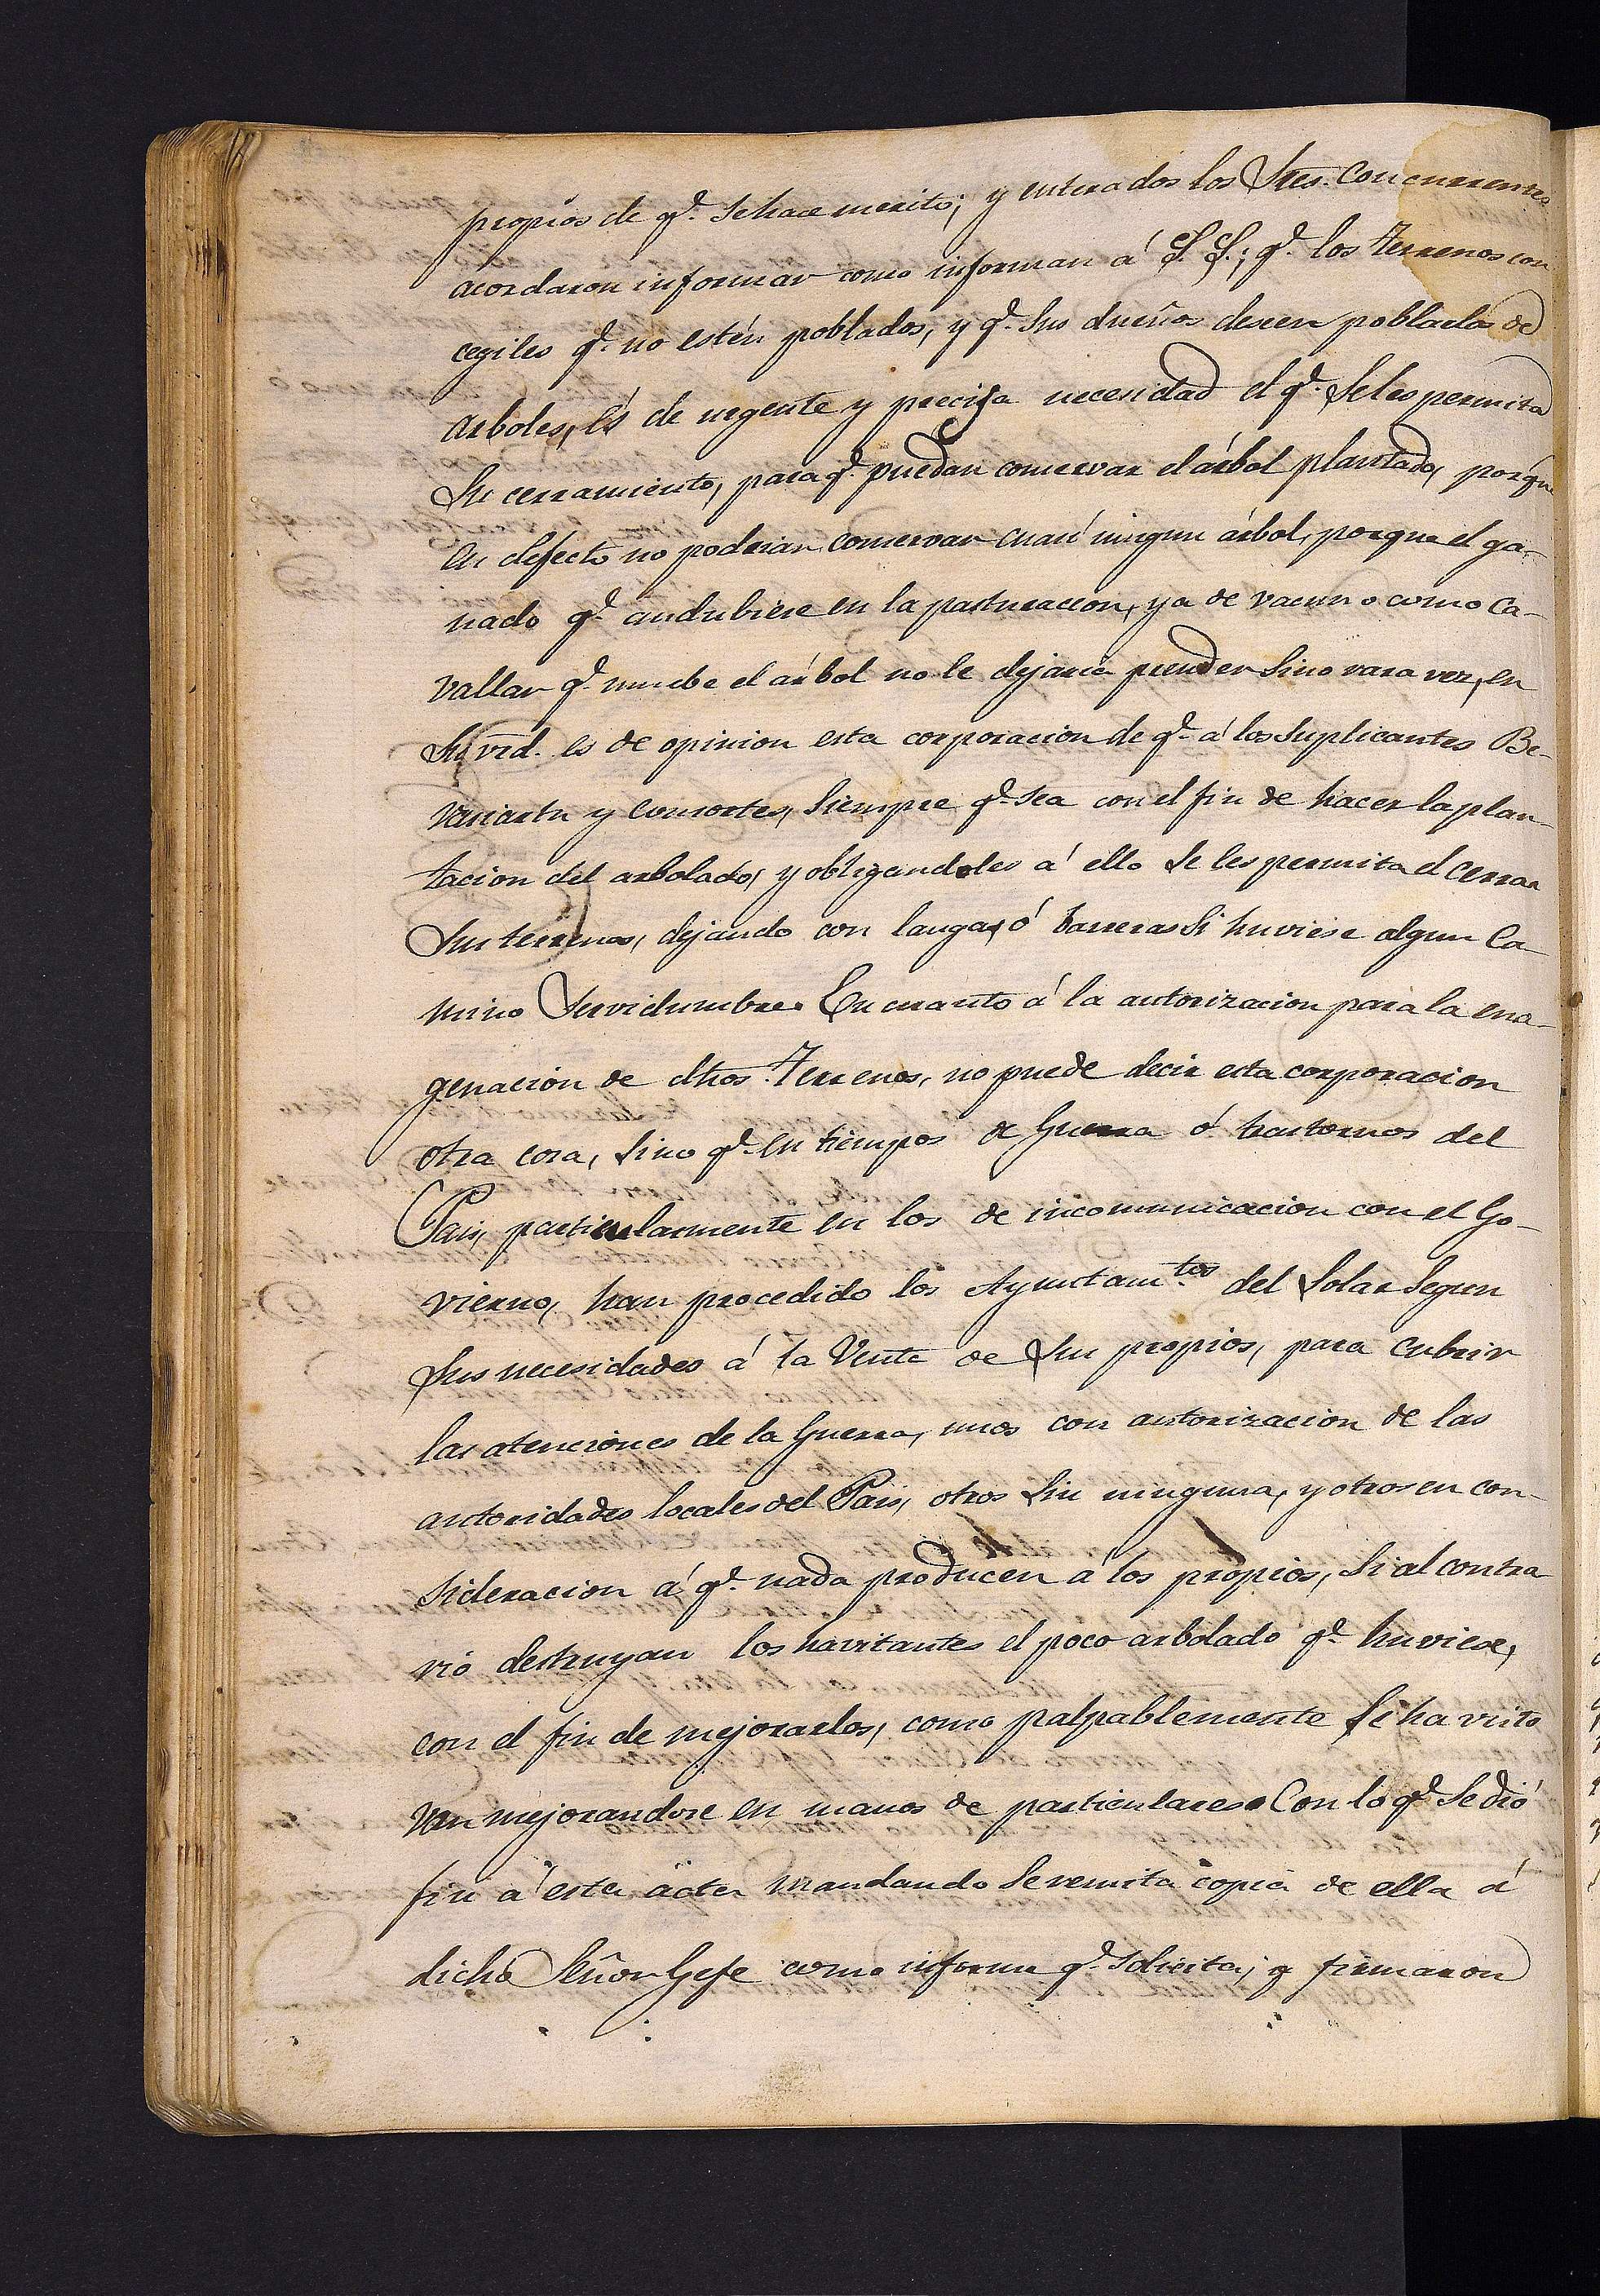 propios de q.e se hace merito; y enterados los Sres. Concurrentes
acordaron informar como informan á S. S.; q.e los Terrenos con
cegiles q.e no estén poblados, y q.e sus dueños deseen poblarlos de
arboles, es de urgente y precisa necesidad el q.e se les permita
su cerramiento, para q.e puedan conservar el árbol plantado, porque
en defecto no poderian conservar cuasi ningun árbol, porque el ga-
nado q.e andubiere en la pasturacion, ya de vacuno como Ca-
vallar q.e muebe el árbol no le dejaria prender sino rara vez, en
su vrd. es de opinion esta corporacion de q.e á los suplicantes Be-
rasiartu y consortes, siempre q.e sea con el fin de hacer la plan-
tacion del arbolado, y obligandoles á ello se les permita el cerrar
sus terrenos, dejando con langas, ó barreras si huviese algun Ca-
mino Servidumbre. En cuanto á la autorizacion para la ena-
genacion de dhos. Terrenos, no puede decir esta corporacion
otra cosa, sino q.e en tiempos de Guerra ó trastornos del
Pais, particularmente en los de incomunicacion con el Go-
vierno, han procedido los Ayuntam.tos del Solar segun
sus necesidades á la Venta de sus propios, para cubrir
las atenciones de la Guerra, unos con autorizacion de las
autoridades locales del Pais, otros sin ninguna, y otros en con-
sideracion á q.e nada producen á los propios, si al contra
rio destruyan los havitantes el poco arbolado q.e huviese,
con el fin de mejorarlos, como palpablemente se ha visto
van mejorandose en manos de particulares. Con lo q.e se dió
fin á esta ácta mandando se remita copia de ella á
dicho Señor Gefe como informe q.e solicita; y firmaron